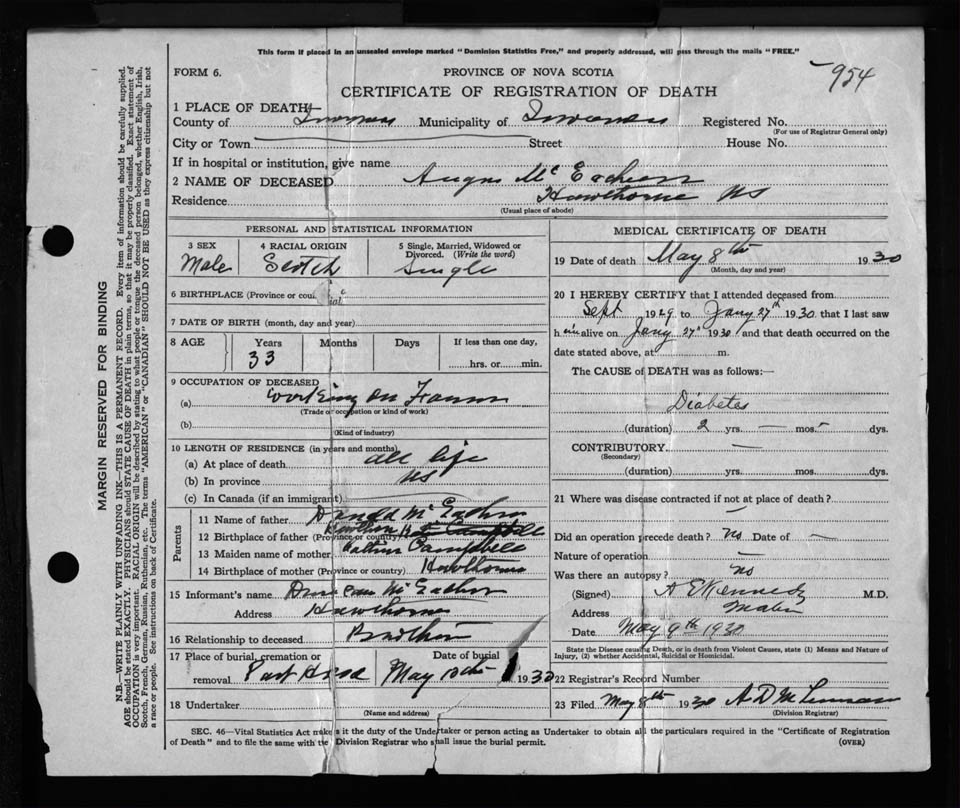 This form if placed in an unsealed envelope marked "Dominion Statistics Free," and properly addressed, will pass through the mails "FREE."
FORM 6.
PROVINCE OF NOVA SCOTIA
954
CERTIFICATE OF REGISTRATION OF DEATH
1 PLACE OF DEATH
County of Inverness Municipality of Inverness Registered No.
(For use of Registrar General only)
City or Town Street House No.
If in hospital or institution, give name
2 NAME OF DECEASED Angus Mc Eachern
Residence Hawthorne NS
(Usual place of abode)
PERSONAL AND STATISTICAL INFORMATION
3 SEX 4 RACIAL ORIGIN 5 Single, Married, Widowed or Divorced. (Write the word)
Male Scotch Single
6 BIRTHPLACE (Province or
7 DATE OF BIRTH (month, day and year)
8 AGE Years Months Days If less than one day,
33 hrs. or min.
9 OCCUPATION OF DECEASED
(a) working on Farm
(Trade or occupation or kind of work)
(b)
(Kind of industry)
10 LENGTH OF RESIDENCE (in years and months)
(a) At place of death all life
(b) In province NS
(c) In Canada (if an immigrant)
Parents
11 Name of father Donald Mc Eachern
12 Birthplace of father (Province or country)
13 Maiden name of mother Campbell
14 Birthplace of mother (Province or country) Hawthorne
15 Informant's name Duncan Mc Eachern
Address Hawthorne
16 Relationship to deceased Brother
17 Place of burial, cremation or removal Port Hood Date of burial May 10th 1930
18 Undertaker
(Name and address)
MEDICAL CERTIFICATE OF DEATH
19 Date of death May 8th 1930
(Month, day and year)
20 I HEREBY CERTIFY that I attended deceased from
Sept 1929 to Jany 27th 1930 that I last saw
him alive on Jany 27th 1930 and that death occurred on the
date stated above, at m.
The CAUSE of DEATH was as follows:—
Diabetes
(duration) 2 yrs. — mos. dys.
CONTRIBUTORY —
(Secondary)
(duration) yrs. mos. dys.
21 Where was disease contracted if not at place of death?
—
Did an operation precede death? No Date of —
Nature of operation —
Was there an autopsy? No
(Signed) A E Kennedy M.D.
Address Mabou
Date May 9th 1930
State the Disease causing Death, or in death from Violent Causes, state (1) Means and Nature of
Injury, (2) whether Accidental, Suicidal or Homicidal.
22 Registrar's Record Number
23 Filed May 8th 1930 A D
(Division Registrar)
SEC. 46—Vital Statistics Act makes it the duty of the Undertaker or person acting as Undertaker to obtain all the particulars required in the "Certificate of Registration
of Death" and to file the same with the Division Registrar who shall issue the burial permit.
(OVER)
MARGIN RESERVED FOR BINDING
N.B.—WRITE PLAINLY WITH UNFADING INK—THIS IS A PERMANENT RECORD. Every item of information should be carefully supplied.
AGE should be stated EXACTLY. PHYSICIANS should STATE CAUSE OF DEATH in plain terms, so that it may be properly classified. Exact statement of
OCCUPATION is very important. RACIAL ORIGIN will be described by stating to what people or tongue the deceased person belonged, whether English, Irish,
Scotch, French, German, Russian, Ruthenian, etc. The terms "AMERICAN" or "CANADIAN" SHOULD NOT BE USED as they express citizenship but not
a race or people. See instructions on back of Certificate.